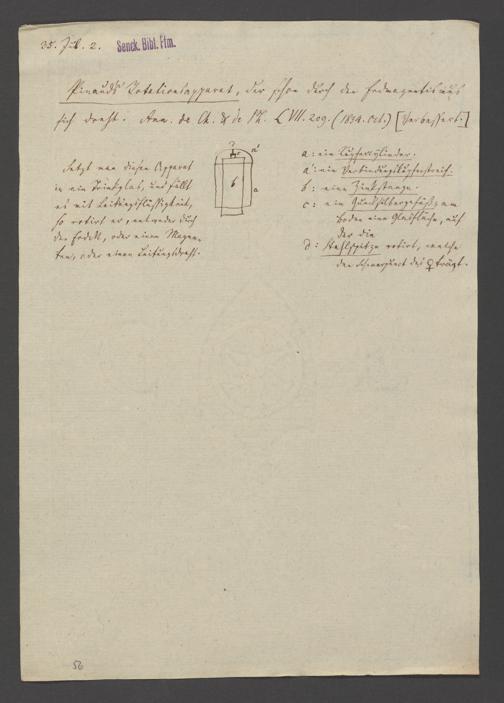 35. Jul. 2.
Senck. Bibl. Ffm.
Pinauds Rotationsapparat, der schon durch den Erdmagnetismus
sich dreht. Ann. de Ch. & de Ph. LVII. 209. (1834. Oct.) [Verbessert.]
Setzt man diesen Apparat
in ein Trinkglas, und füllt
es mit Leitungsflüssigkeit,
so rotirt er, entweder durch
den Erdelt., oder einen Magne-
ten, oder einen Leitungsdraht.
d
a'
b
a
a: ein Kupfercylinder.
a': ein Verbindungskupferstreif.
b: eine Zinkstange.
c: ein Quecksilbergefäß, am
Boden eine Glasfläche, auf
der die
d: Stahlspitze rotirt, welche
den Schwerpunct des ♀ trägt.
56